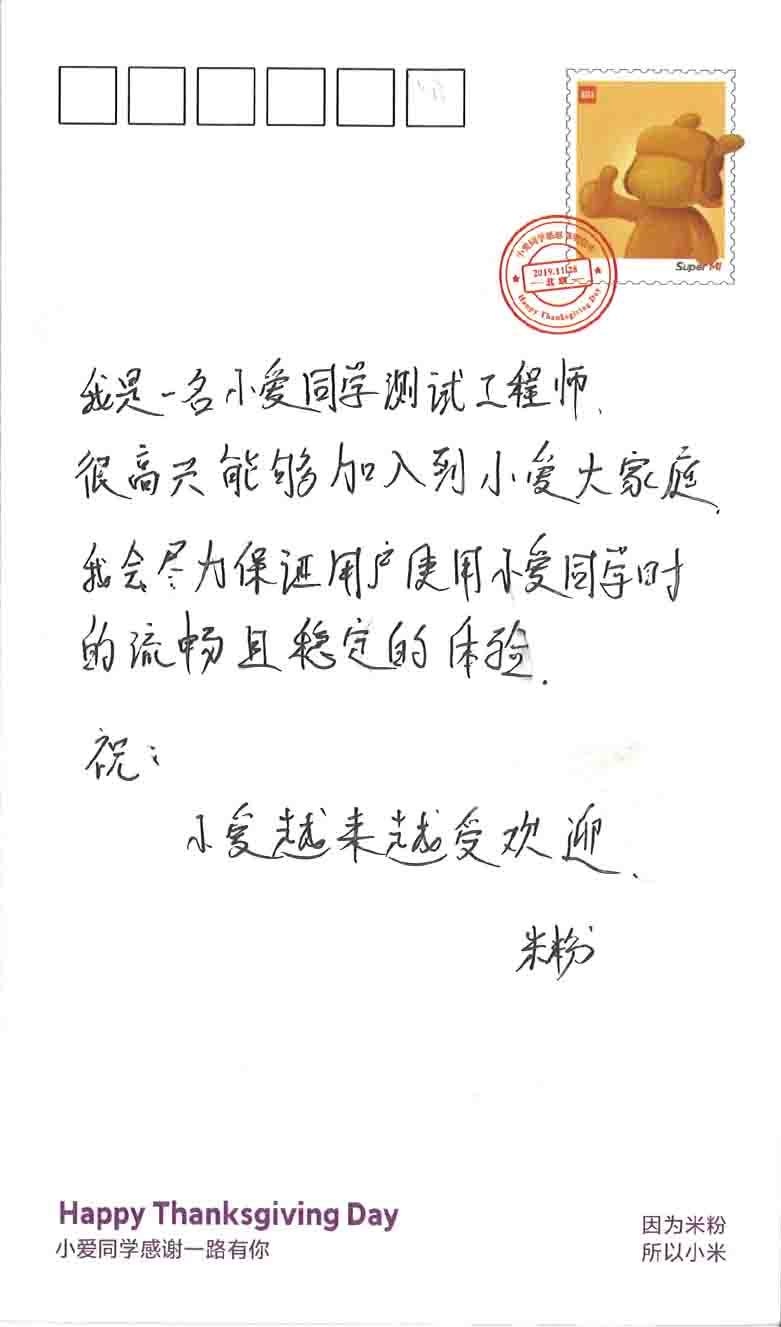 Super Mi
小爱同学感恩
2019.11.28
北京
Happy Thanksgiving Day
我是一名小爱同学测试工程师.
很高兴能够加入到小爱大家庭.
我会尽力保证用户使用小爱同学时
的流畅且稳定的体验.
祝:
小爱越来越受欢迎.
米粉
Happy Thanksgiving Day
小爱同学感谢一路有你
因为米粉
所以小米